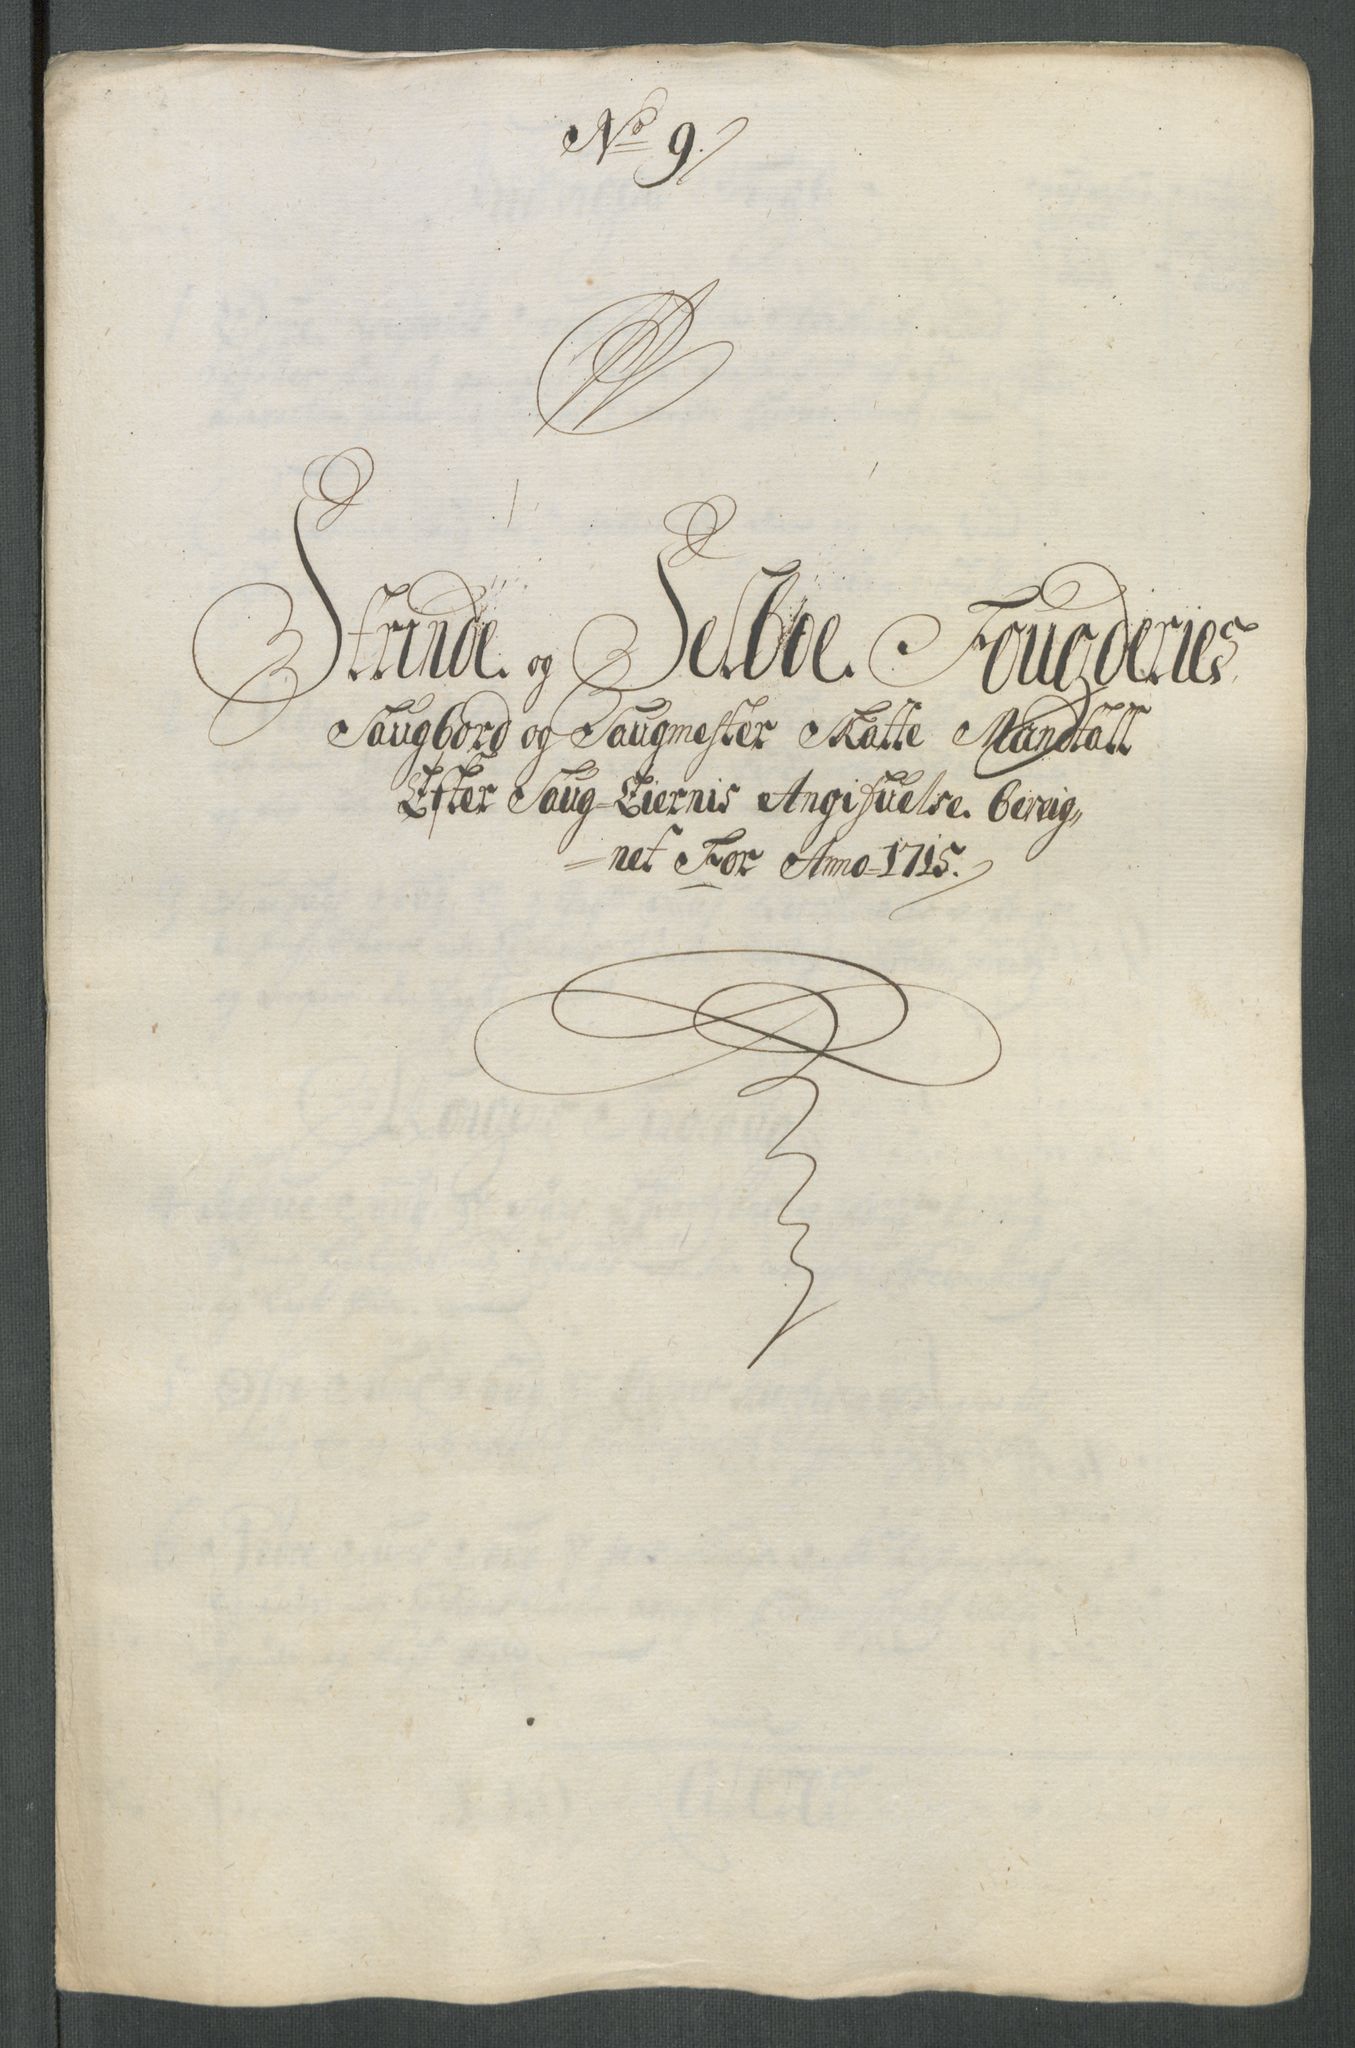 No 9.
Strinde og Selboe Fougderies
Saugbord og Saugmester Skatte Mandtall
Efter Saug-Eiernis Angifuelse bereig„
=net For Anno 1715.